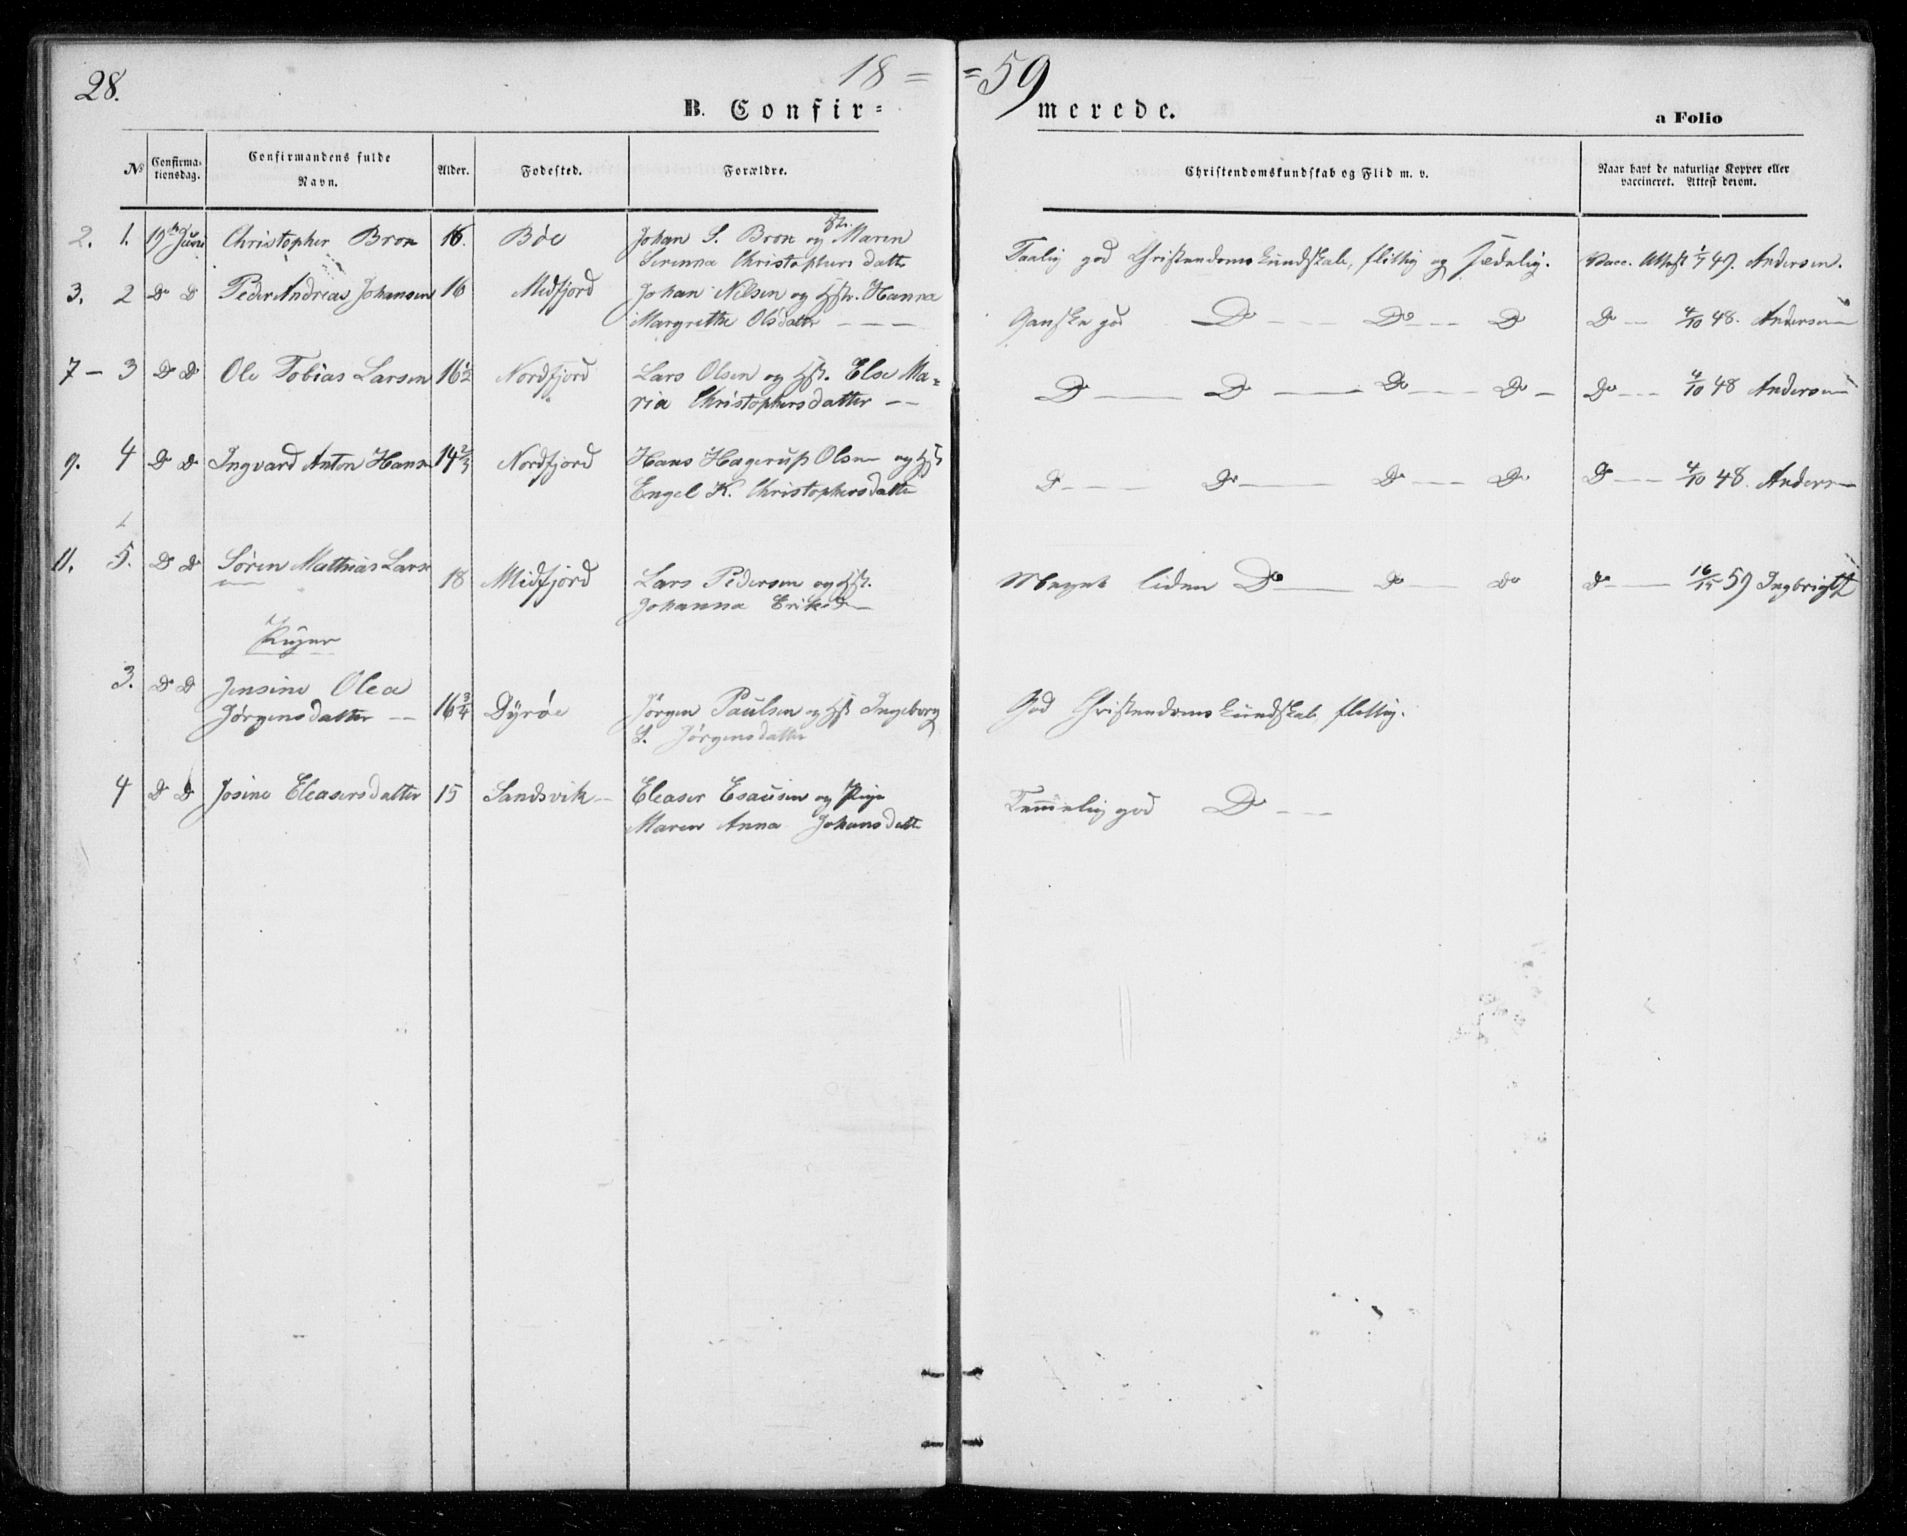 28.
18 = = 59
B. Confir= merede.
a Folio
No Confirmationsdag. Confirmandens fulde Navn. Alder. Fødested. Forældre. Christendomskundskab og Flid m. v. Naar havt de naturlige Kopper eller vaccineret. Attest derom.
2. 1. 19de Juni Christopher Bron 16. Bøe Johan S. Bron og Hstr. Maren Taalig god Christendomskundskab, flittig og sædelig. Vacc. Attest 47. Andersen.
Serenna Christophersdatter
3. 2 Do Do Peder Andreas Johansen 16 Midfjord Johan Nilsen og Hstr. Hanna
Margrethe Olsdatter — — — Ganske god Do — Do — Do Do — 4/10 48. Andersen
7 – 3 Do Do Ole Tobias Larsen 16½ Nordfjord Lars Olsen og Hstr. Else Ma=
ria Christophersdatter — — Do — Do — Do — Do — Do — 4/10 48 Andersen
9. 4 Do Do Ingvard Anton Hans 14 2/3 Nordfjord Hans Hagerup Olsen og Hstr
Engel K. Christophersdatter Do — Do — Do — Do Do — 4/10 48. Andersen
11. 5. Do Do Søren Mathias Lars
en 18 Midfjord Lars Pedersen og Hstr. Meget liden Do — Do — Do Do — 59 Ingbrigt
Johanna Eriksd
Piger
3. Do Do Jensine Olea
Jørgensdatter — 16¾ Dyrøe Jørgen Paulsen og Hstr Ingeborg God Christendomskundskab flittig.
S. Jørgensdatter
4 Do Do Josine Eleasersdatter 15 Sandsvik – Eleaser Esausen og Pige Temmelig god Do —
Maren Anna Johansdatter